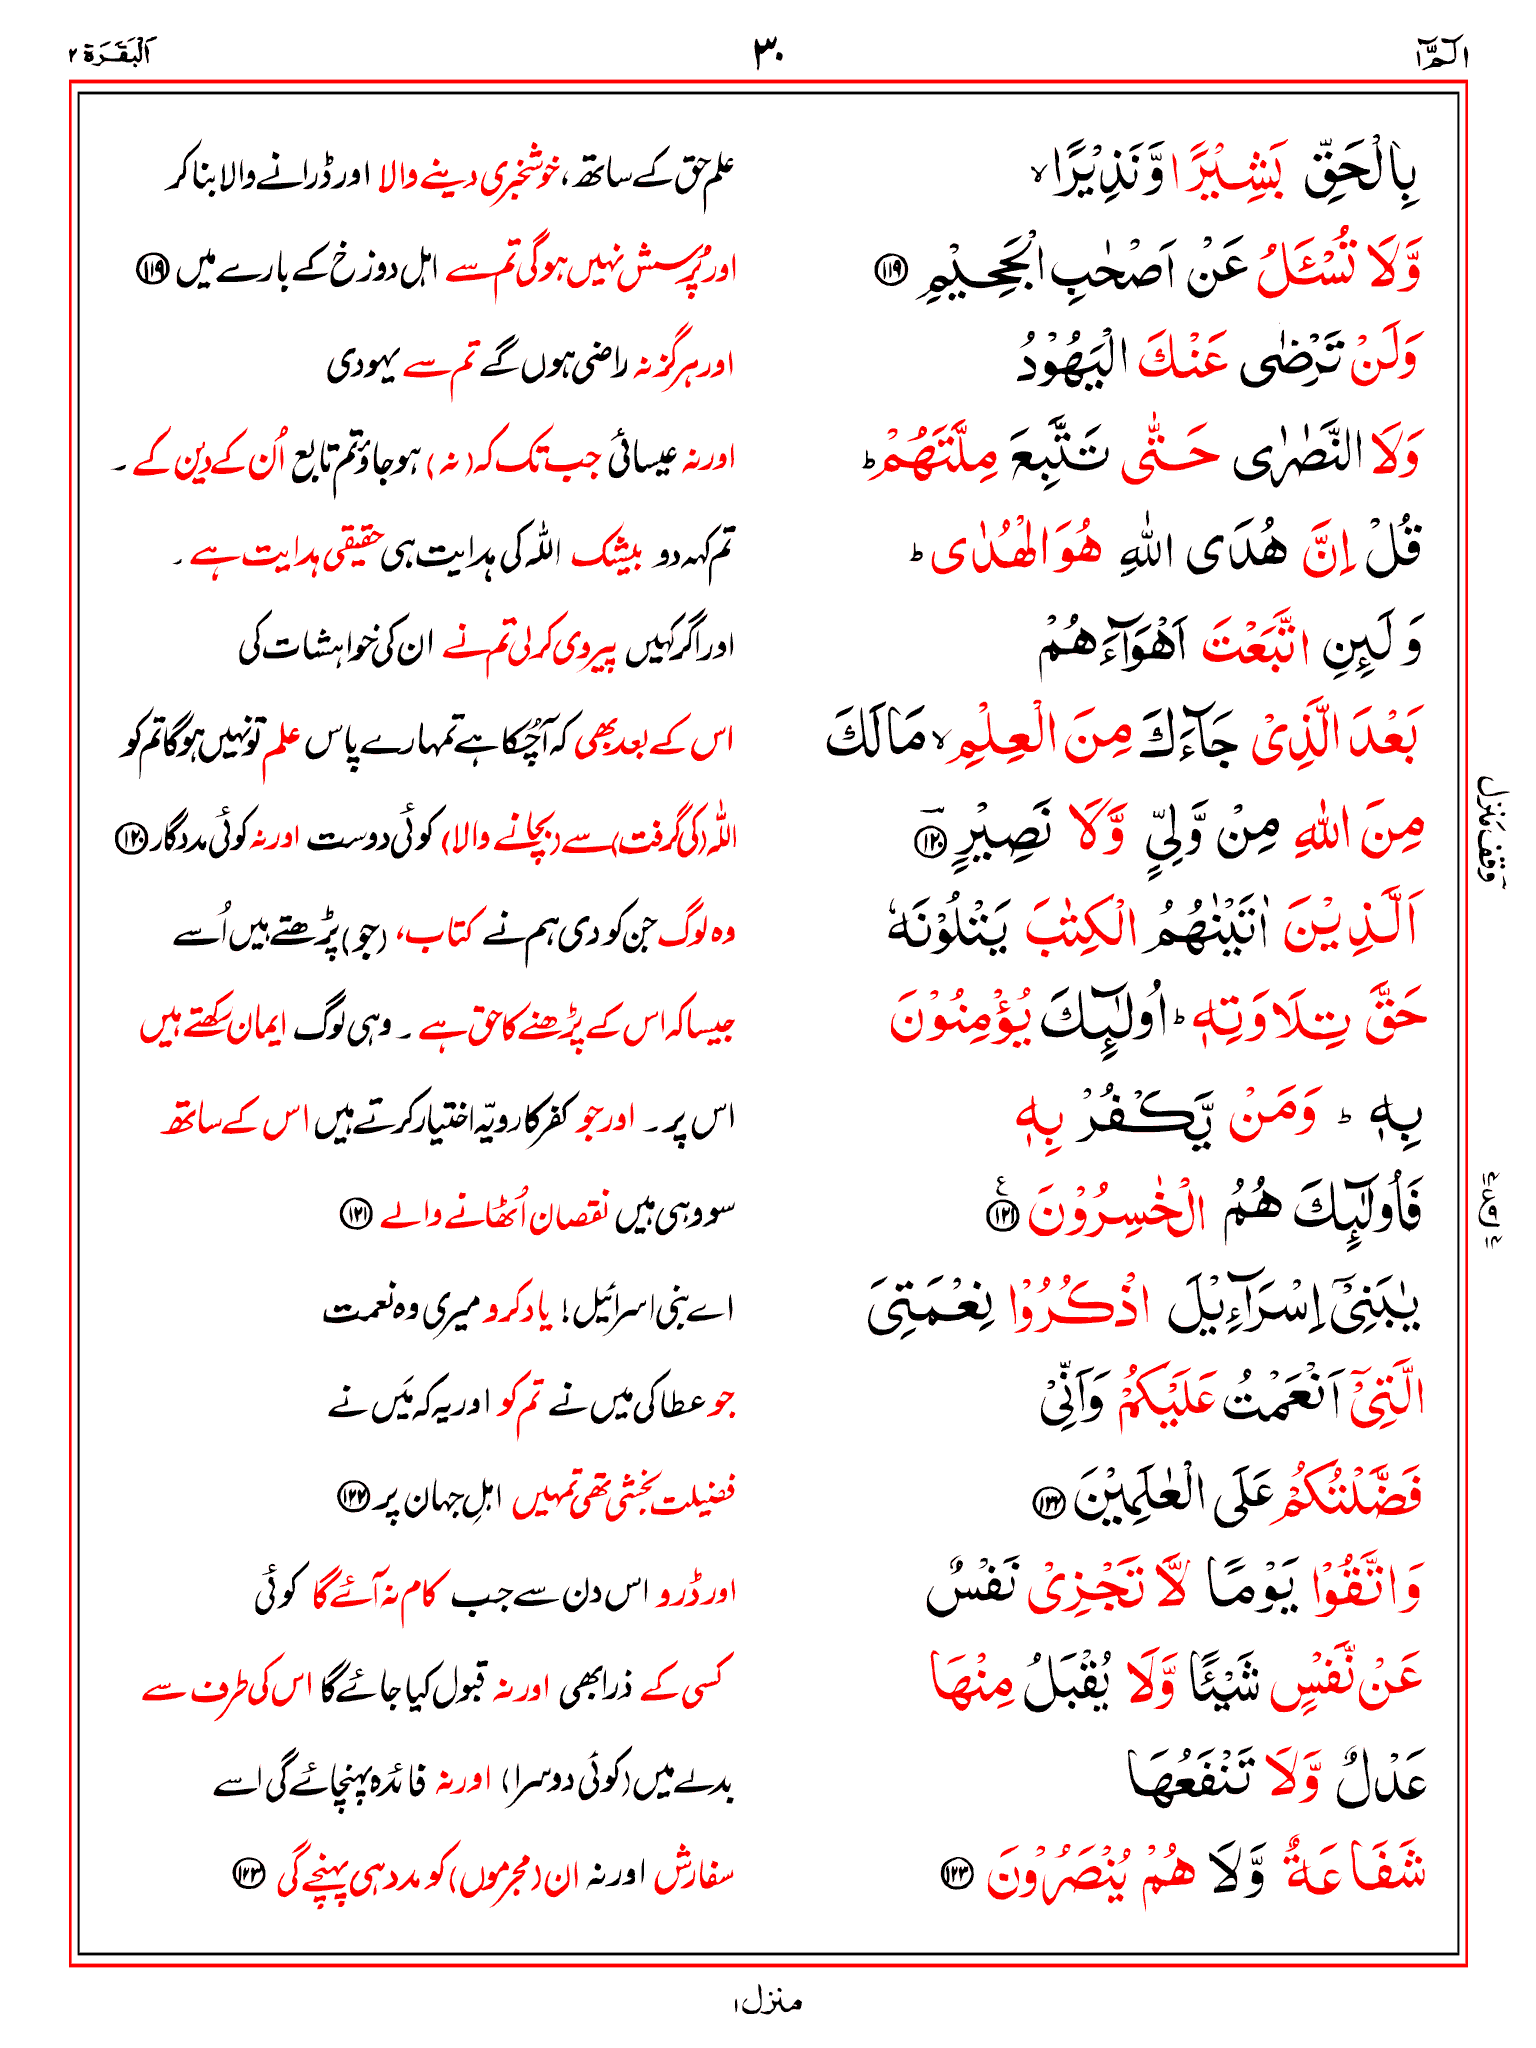 الٓمّٓ ۱
۳۰
اَلْبَقَرَة ۲
بِالْحَقِّ بَشِيْرًا وَّنَذِيْرًا ۙ
علم حق کے ساتھ، خوشخبری دینے والا اور ڈرانے والا بنا کر
وَّلَا تُسْـَٔلُ عَنْ اَصْحٰبِ الْجَحِيْمِ ﴿۱۱۹﴾
اور پُرسش نہیں ہوگی تم سے اہل دوزخ کے بارے میں ﴿۱۱۹﴾
وَلَنْ تَرْضٰى عَنْكَ الْيَهُوْدُ
اور ہرگز نہ راضی ہوں گے تم سے یہودی
وَلَا النَّصٰرٰى حَتّٰى تَتَّبِعَ مِلَّتَهُمْ ؕ
اور نہ عیسائی جب تک کہ (نہ) ہو جاؤ تم تابع اُن کے دین کے ۔
قُلْ اِنَّ هُدَى اللّٰهِ هُوَ الْهُدٰى ؕ
تم کہہ دو بیشک اللہ کی ہدایت ہی حقیقی ہدایت ہے ۔
وَلَئِنِ اتَّبَعْتَ اَهْوَآءَهُمْ
اور اگر کہیں پیروی کرلی تم نے ان کی خواہشات کی
بَعْدَ الَّذِيْ جَآءَكَ مِنَ الْعِلْمِ ۙ مَا لَكَ
اس کے بعد بھی کہ آچُکا ہے تمہارے پاس علم تو نہیں ہوگا تم کو
مِنَ اللّٰهِ مِنْ وَّلِيٍّ وَّلَا نَصِيْرٍ ﴿۱۲۰﴾
اللہ (کی گرفت) سے (بچانے والا) کوئی دوست اور نہ کوئی مددگار ﴿۱۲۰﴾
اَلَّذِيْنَ اٰتَيْنٰهُمُ الْكِتٰبَ يَتْلُوْنَهٗ
وہ لوگ جن کو دی ہم نے کتاب، (جو) پڑھتے ہیں اُسے
حَقَّ تِلَاوَتِهٖ ؕ اُولٰٓئِكَ يُؤْمِنُوْنَ
جیسا کہ اس کے پڑھنے کا حق ہے ۔ وہی لوگ ایمان رکھتے ہیں
بِهٖ ؕ وَمَنْ يَّكْفُرْ بِهٖ
اس پر ۔ اور جو کفر کا رویّہ اختیار کرتے ہیں اس کے ساتھ
فَاُولٰٓئِكَ هُمُ الْخٰسِرُوْنَ ﴿۱۲۱﴾ ع
سو وہی ہیں نقصان اُٹھانے والے ﴿۱۲۱﴾
يٰبَنِيْٓ اِسْرَآءِيْلَ اذْكُرُوْا نِعْمَتِيَ
اے بنی اسرائیل! یاد کرو میری وہ نعمت
الَّتِيْٓ اَنْعَمْتُ عَلَيْكُمْ وَاَنِّيْ
جو عطا کی میں نے تم کو اور یہ کہ مَیں نے
فَضَّلْتُكُمْ عَلَى الْعٰلَمِيْنَ ﴿۱۲۲﴾
فضیلت بخشی تھی تمہیں اہلِ جہان پر ﴿۱۲۲﴾
وَاتَّقُوْا يَوْمًا لَّا تَجْزِيْ نَفْسٌ
اور ڈرو اس دن سے جب کام نہ آئے گا کوئی
عَنْ نَّفْسٍ شَيْـًٔا وَّلَا يُقْبَلُ مِنْهَا
کسی کے ذرا بھی اور نہ قبول کیا جائے گا اس کی طرف سے
عَدْلٌ وَّلَا تَنْفَعُهَا
بدلے میں (کوئی دوسرا) اور نہ فائدہ پہنچائے گی اسے
شَفَاعَةٌ وَّلَا هُمْ يُنْصَرُوْنَ ﴿۱۲۳﴾
سفارش اور نہ ان (مجرموں) کو مدد ہی پہنچے گی ﴿۱۲۳﴾
وقف منزل
منزل ۱